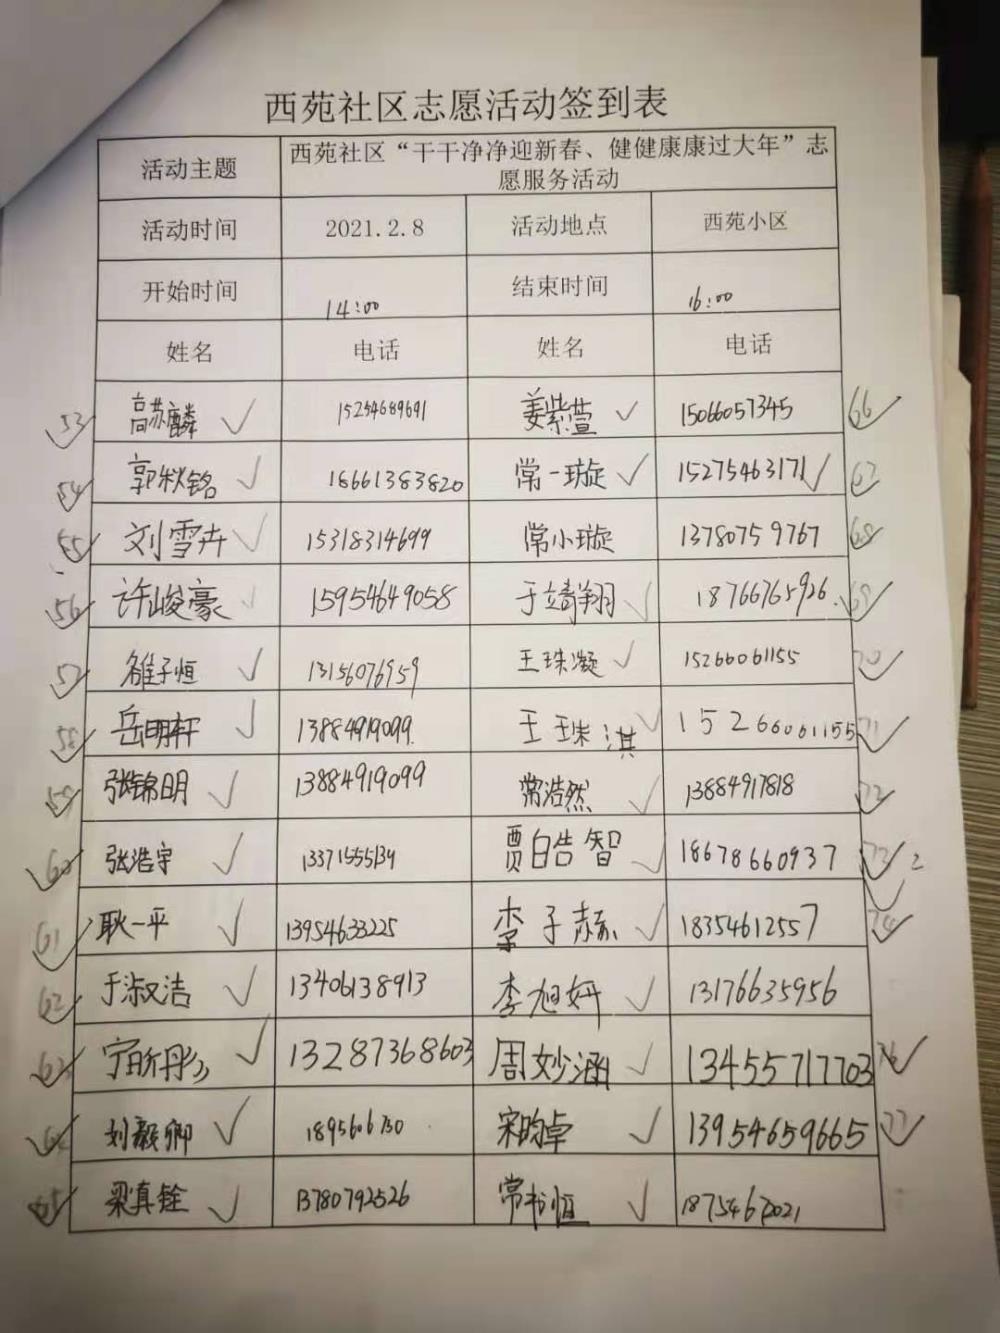 西苑社区志愿活动签到表
活动主题 西苑社区“干干净净迎新春、健健康康过大年”志
愿服务活动
活动时间 2021.2.8 活动地点 西苑小区
开始时间 14:00 结束时间 16:00
姓名 电话 姓名 电话
53 高苏麟 15254689691 姜紫萱 15066057345 66
54 郭秋铭 18661383820 常一璇 15275463171 67
55 刘雪卉 15318314699 常小璇 13780759767 68
56 许峻豪 15954649058 于靖翔 18766765926 69
57 雒子恒 13156076959 王珠凝 15266061155 70
58 岳明轩 13884919099 王珠淇 15266061155 71
59 张锦明 13884919099 常浩然 13884917818 72
60 张浩宇 13371555139 贾皓智 18678660937 73 2
61 耿一平 13954633225 李子赫 18354612557 74
62 于淑洁 13406138913 李旭妍 13176635956
63 宁昕彤 13287368603 周妙涵 13455717703 76
64 刘毅卿 1895606730 宋昀卓 13954659665 77
65 梁真铨 13780792526 常书恒 18754672021